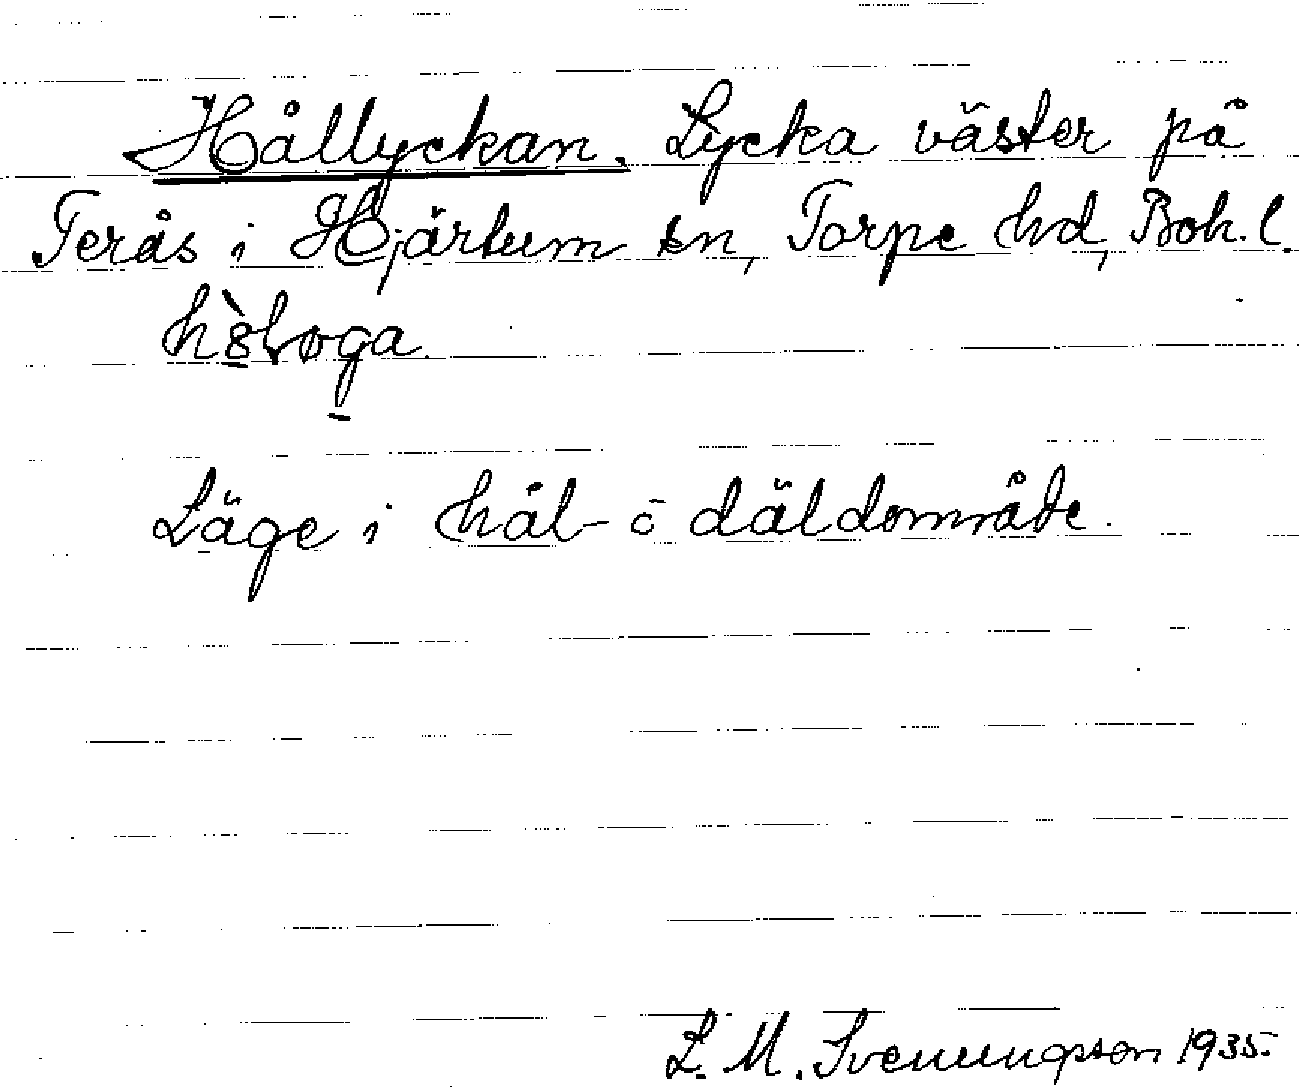 Hållyckan. Lycka väster på
Terås i Hjärtum sn, Torpe hd, Boh. l.
Läge i hål- o däldområde.
L. M. Svenungsson 1935.